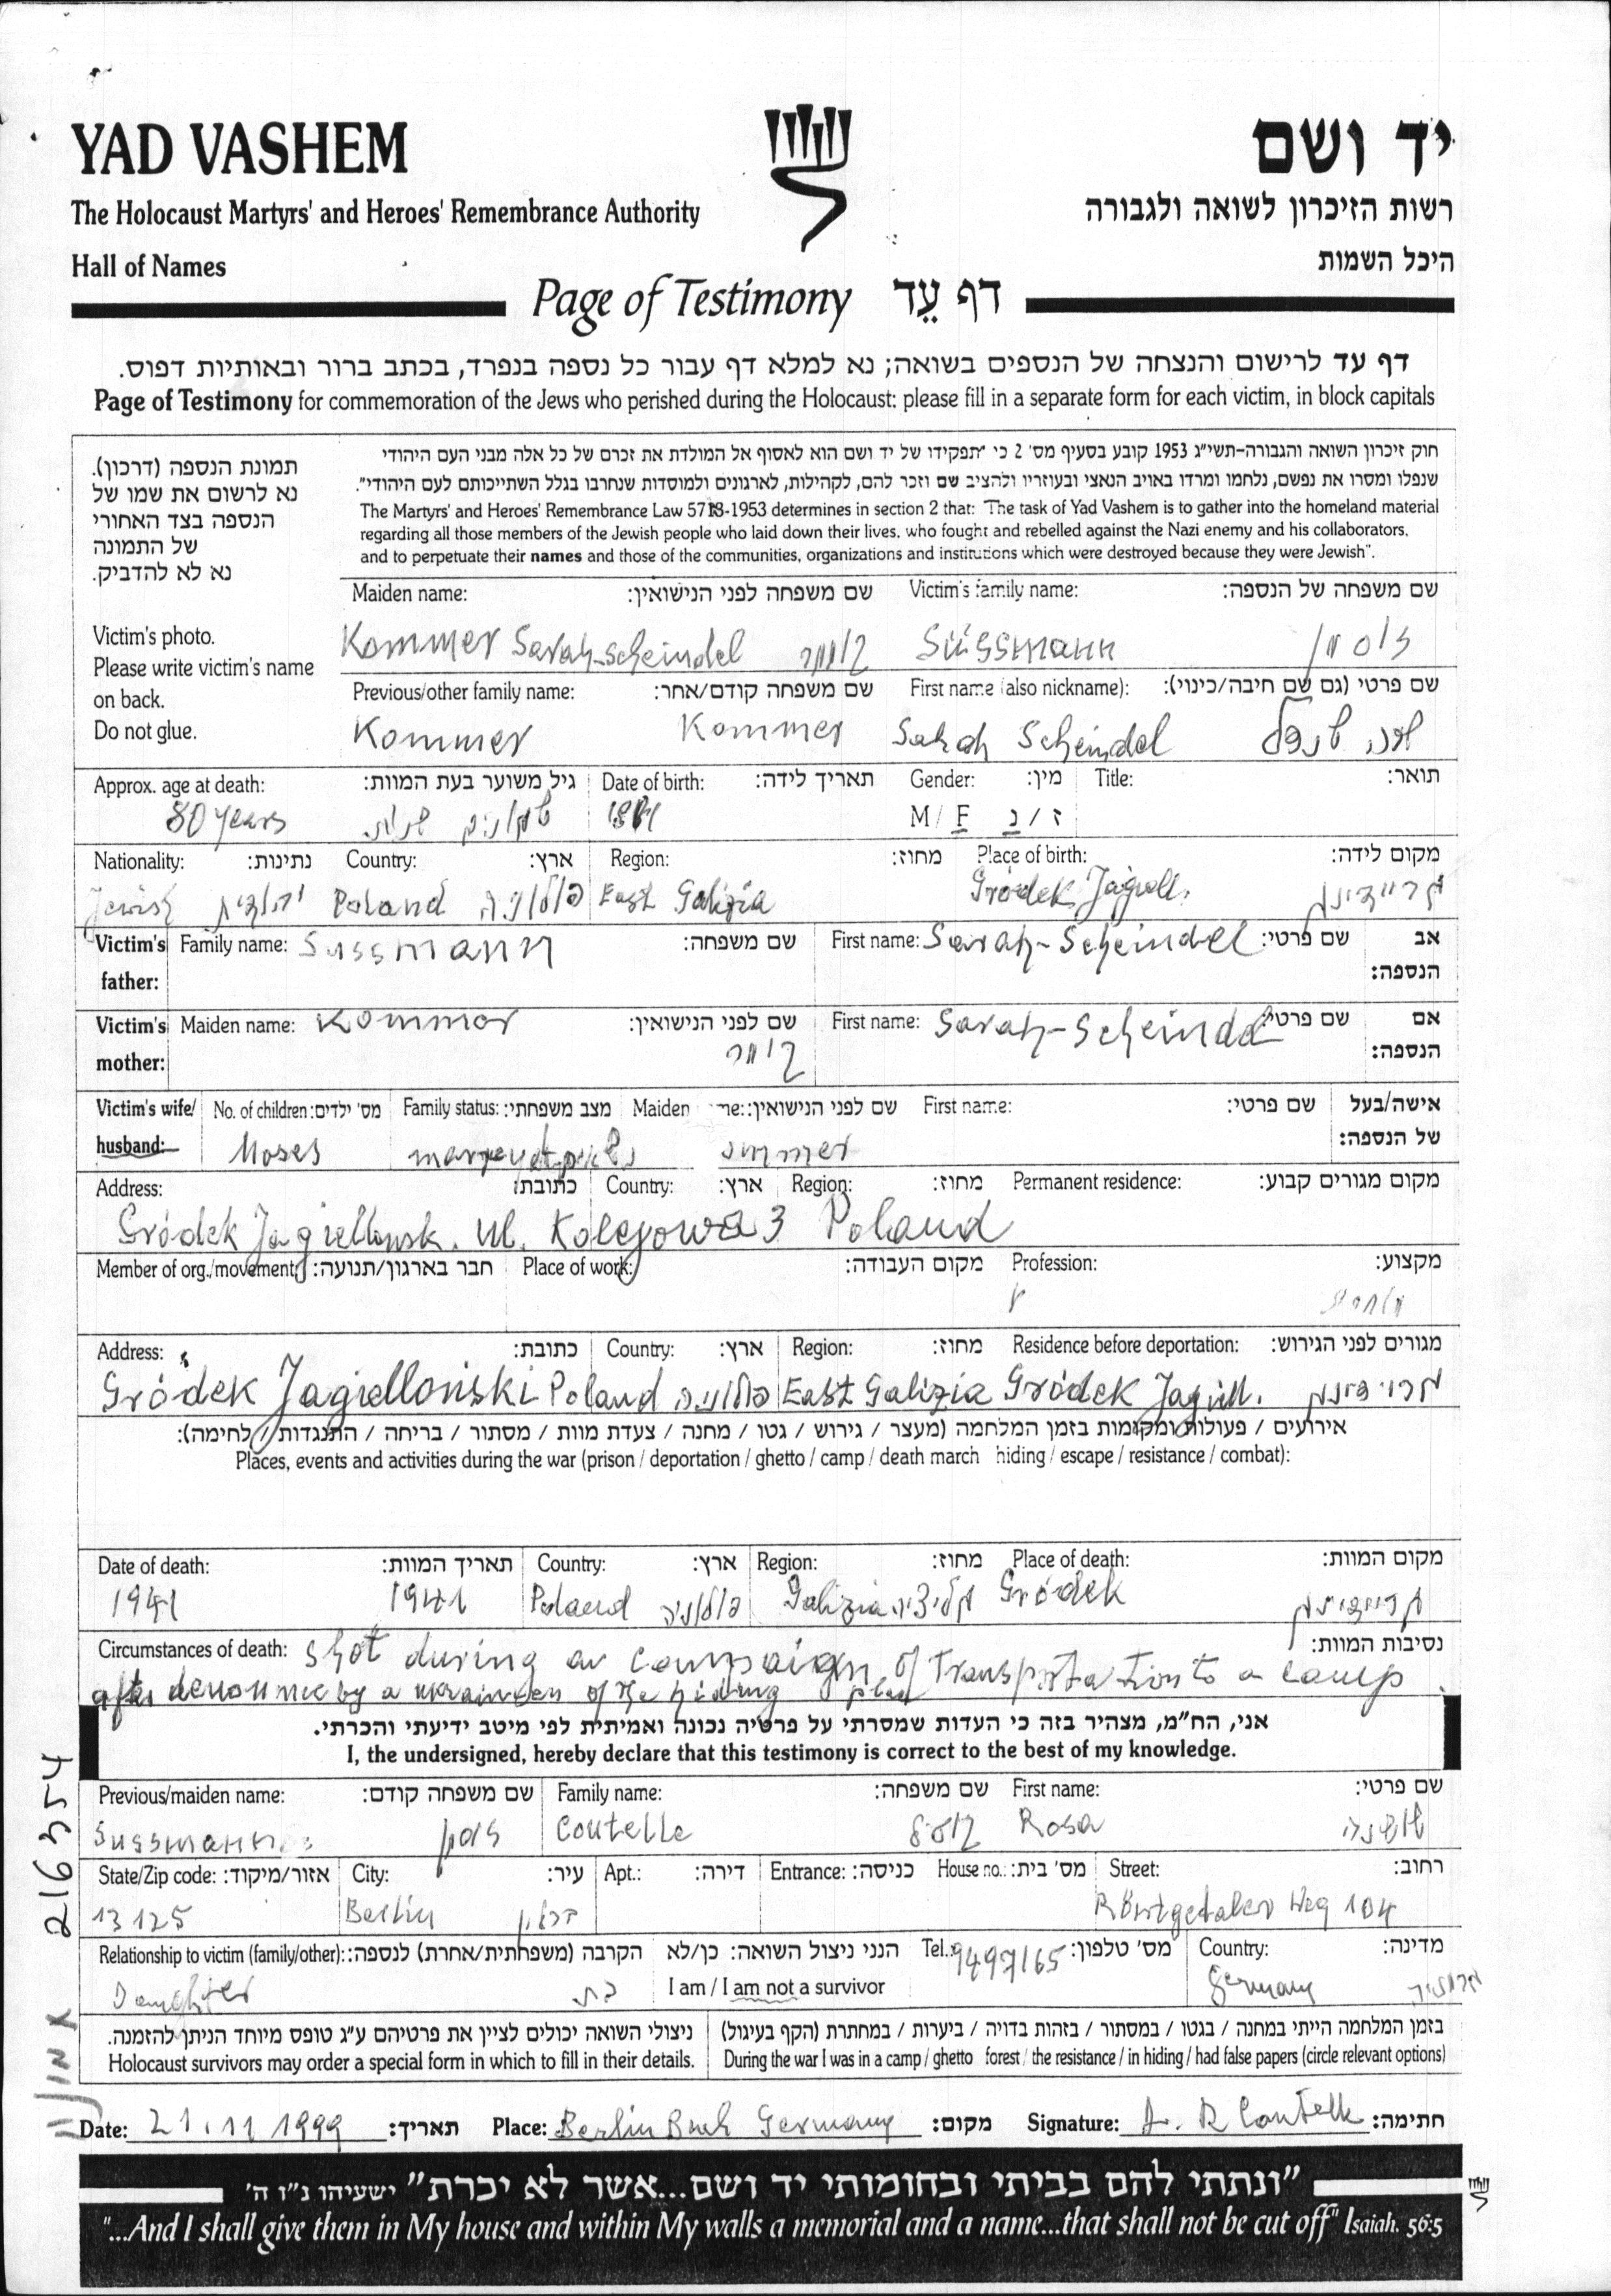 YAD VASHEM
יד ושם
The Holocaust Martyrs' and Heroes' Remembrance Authority
רשות הזיכרון לשואה ולגבורה
Hall of Names
היכל השמות
Page of Testimony דף עֵד
דף עד לרישום והנצחה של הנספים בשואה; נא למלא דף עבור כל נספה בנפרד, בכתב ברור ובאותיות דפוס.
Page of Testimony for commemoration of the Jews who perished during the Holocaust: please fill in a separate form for each victim, in block capitals
חוק זיכרון השואה והגבורה-תשי"ג 1953 קובע בסעיף מס' 2 כי "תפקידו של יד ושם הוא לאסוף אל המולדת את זכרם של כל אלה מבני העם היהודי
שנפלו ומסרו את נפשם, נלחמו ומרדו באויב הנאצי ובעוזריו ולהציב שם וזכר להם, לקהילות, לארגונים ולמוסדות שנחרבו בגלל השתייכותם לעם היהודי".
The Martyrs' and Heroes' Remembrance Law 5713-1953 determines in section 2 that: "The task of Yad Vashem is to gather into the homeland material
regarding all those members of the Jewish people who laid down their lives, who fought and rebelled against the Nazi enemy and his collaborators,
and to perpetuate their names and those of the communities, organizations and institutions which were destroyed because they were Jewish".
תמונת הנספה (דרכון).
נא לרשום את שמו של
הנספה בצד האחורי
של התמונה
נא לא להדביק.
Victim's photo.
Please write victim's name
on back.
Do not glue.
Maiden name: שם משפחה לפני הנישואין: Victim's family name: שם משפחה של הנספה:
Kommer Sarah-Scheindel קומר Süssmann זוסמן
Previous/other family name: שם משפחה קודם/אחר: First name (also nickname): שם פרטי (גם שם חיבה/כינוי):
Kommer Kommer Sarah Scheindel
Approx. age at death: גיל משוער בעת המוות: Date of birth: תאריך לידה: Gender: מין: Title: תואר:
80 years שמונים שנות M/ F ז / נ
Nationality: נתינות: Country: ארץ: Region: מחוז: Place of birth: מקום לידה:
Jewish יהודית Poland פולניה East Galizia Gródek Jagiell.
Victim's father: Family name: Sussmann שם משפחה: First name: Sarah-Scheindel שם פרטי: אב הנספה:
Victim's mother: Maiden name: Kommer שם לפני הנישואין: קומר First name: Sarah-Scheindel שם פרטי: אם הנספה:
Victim's wife/ husband: No. of children: מס' ילדים: Family status: מצב משפחתי: Maiden me: שם לפני הנישואין: First name: שם פרטי: אישה/בעל של הנספה:
Moses ommer
Address: כתובת: Country: ארץ: Region: מחוז: Permanent residence: מקום מגורים קבוע:
Gródek Jagiellonsk. ul. Kolejowa 3 Poland
Member of org./movement: חבר בארגון/תנועה: Place of work: מקום העבודה: Profession: מקצוע:
Address: כתובת: Country: ארץ: Region: מחוז: Residence before deportation: מגורים לפני הגירוש:
Gródek Jagielloński Poland פולניה East Galizia Gródek Jagiell.
אירועים / פעולות ומקומות בזמן המלחמה (מעצר / גירוש / גטו / מחנה / צעדת מוות / מסתור / בריחה / התנגדות / לחימה):
Places, events and activities during the war (prison / deportation / ghetto / camp / death march hiding / escape / resistance / combat):
Date of death: תאריך המוות: Country: ארץ: Region: מחוז: Place of death: מקום המוות:
1941 1941 Poland פולניה Galizia גליציה Gródek
Circumstances of death: shot during a campaign of transportation to a camp נסיבות המוות:
after denounnce by a ukrainien of the hiding place
אני, הח"מ, מצהיר בזה כי העדות שמסרתי על פרטיה נכונה ואמיתית לפי מיטב ידיעתי והכרתי.
I, the undersigned, hereby declare that this testimony is correct to the best of my knowledge.
Previous/maiden name: שם משפחה קודם: Family name: שם משפחה: First name: שם פרטי:
Sussmann זוסמן Coutelle Rosa שושנה
State/Zip code: אזור/מיקוד: City: עיר: Apt.: דירה: Entrance: כניסה: House no.: מס' בית: Street: רחוב:
13125 Berlin ברלין Röntgetaler Weg 104
Relationship to victim (family/other): הקרבה (משפחתית/אחרת) לנספה: הנני ניצול השואה: כן/לא Tel.: 9497165 מס' טלפון: Country: מדינה:
Daughter בת I am / I am not a survivor Germany גרמניה
ניצולי השואה יכולים לציין את פרטיהם ע"ג טופס מיוחד הניתן להזמנה.
Holocaust survivors may order a special form in which to fill in their details.
בזמן המלחמה הייתי במחנה / בגטו / במסתור / בזהות בדויה / ביערות / במחתרת (הקף בעיגול)
During the war I was in a camp / ghetto forest / the resistance / in hiding / had false papers (circle relevant options)
Date: 21.11 1999 תאריך: Place: Berlin Buch Germany מקום: Signature: A. R Coutelle חתימה:
216354
"ונתתי להם בביתי ובחומותי יד ושם...אשר לא יכרת" ישעיהו נ"ו ה'
"...And I shall give them in My house and within My walls a memorial and a name...that shall not be cut off" Isaiah. 56:5